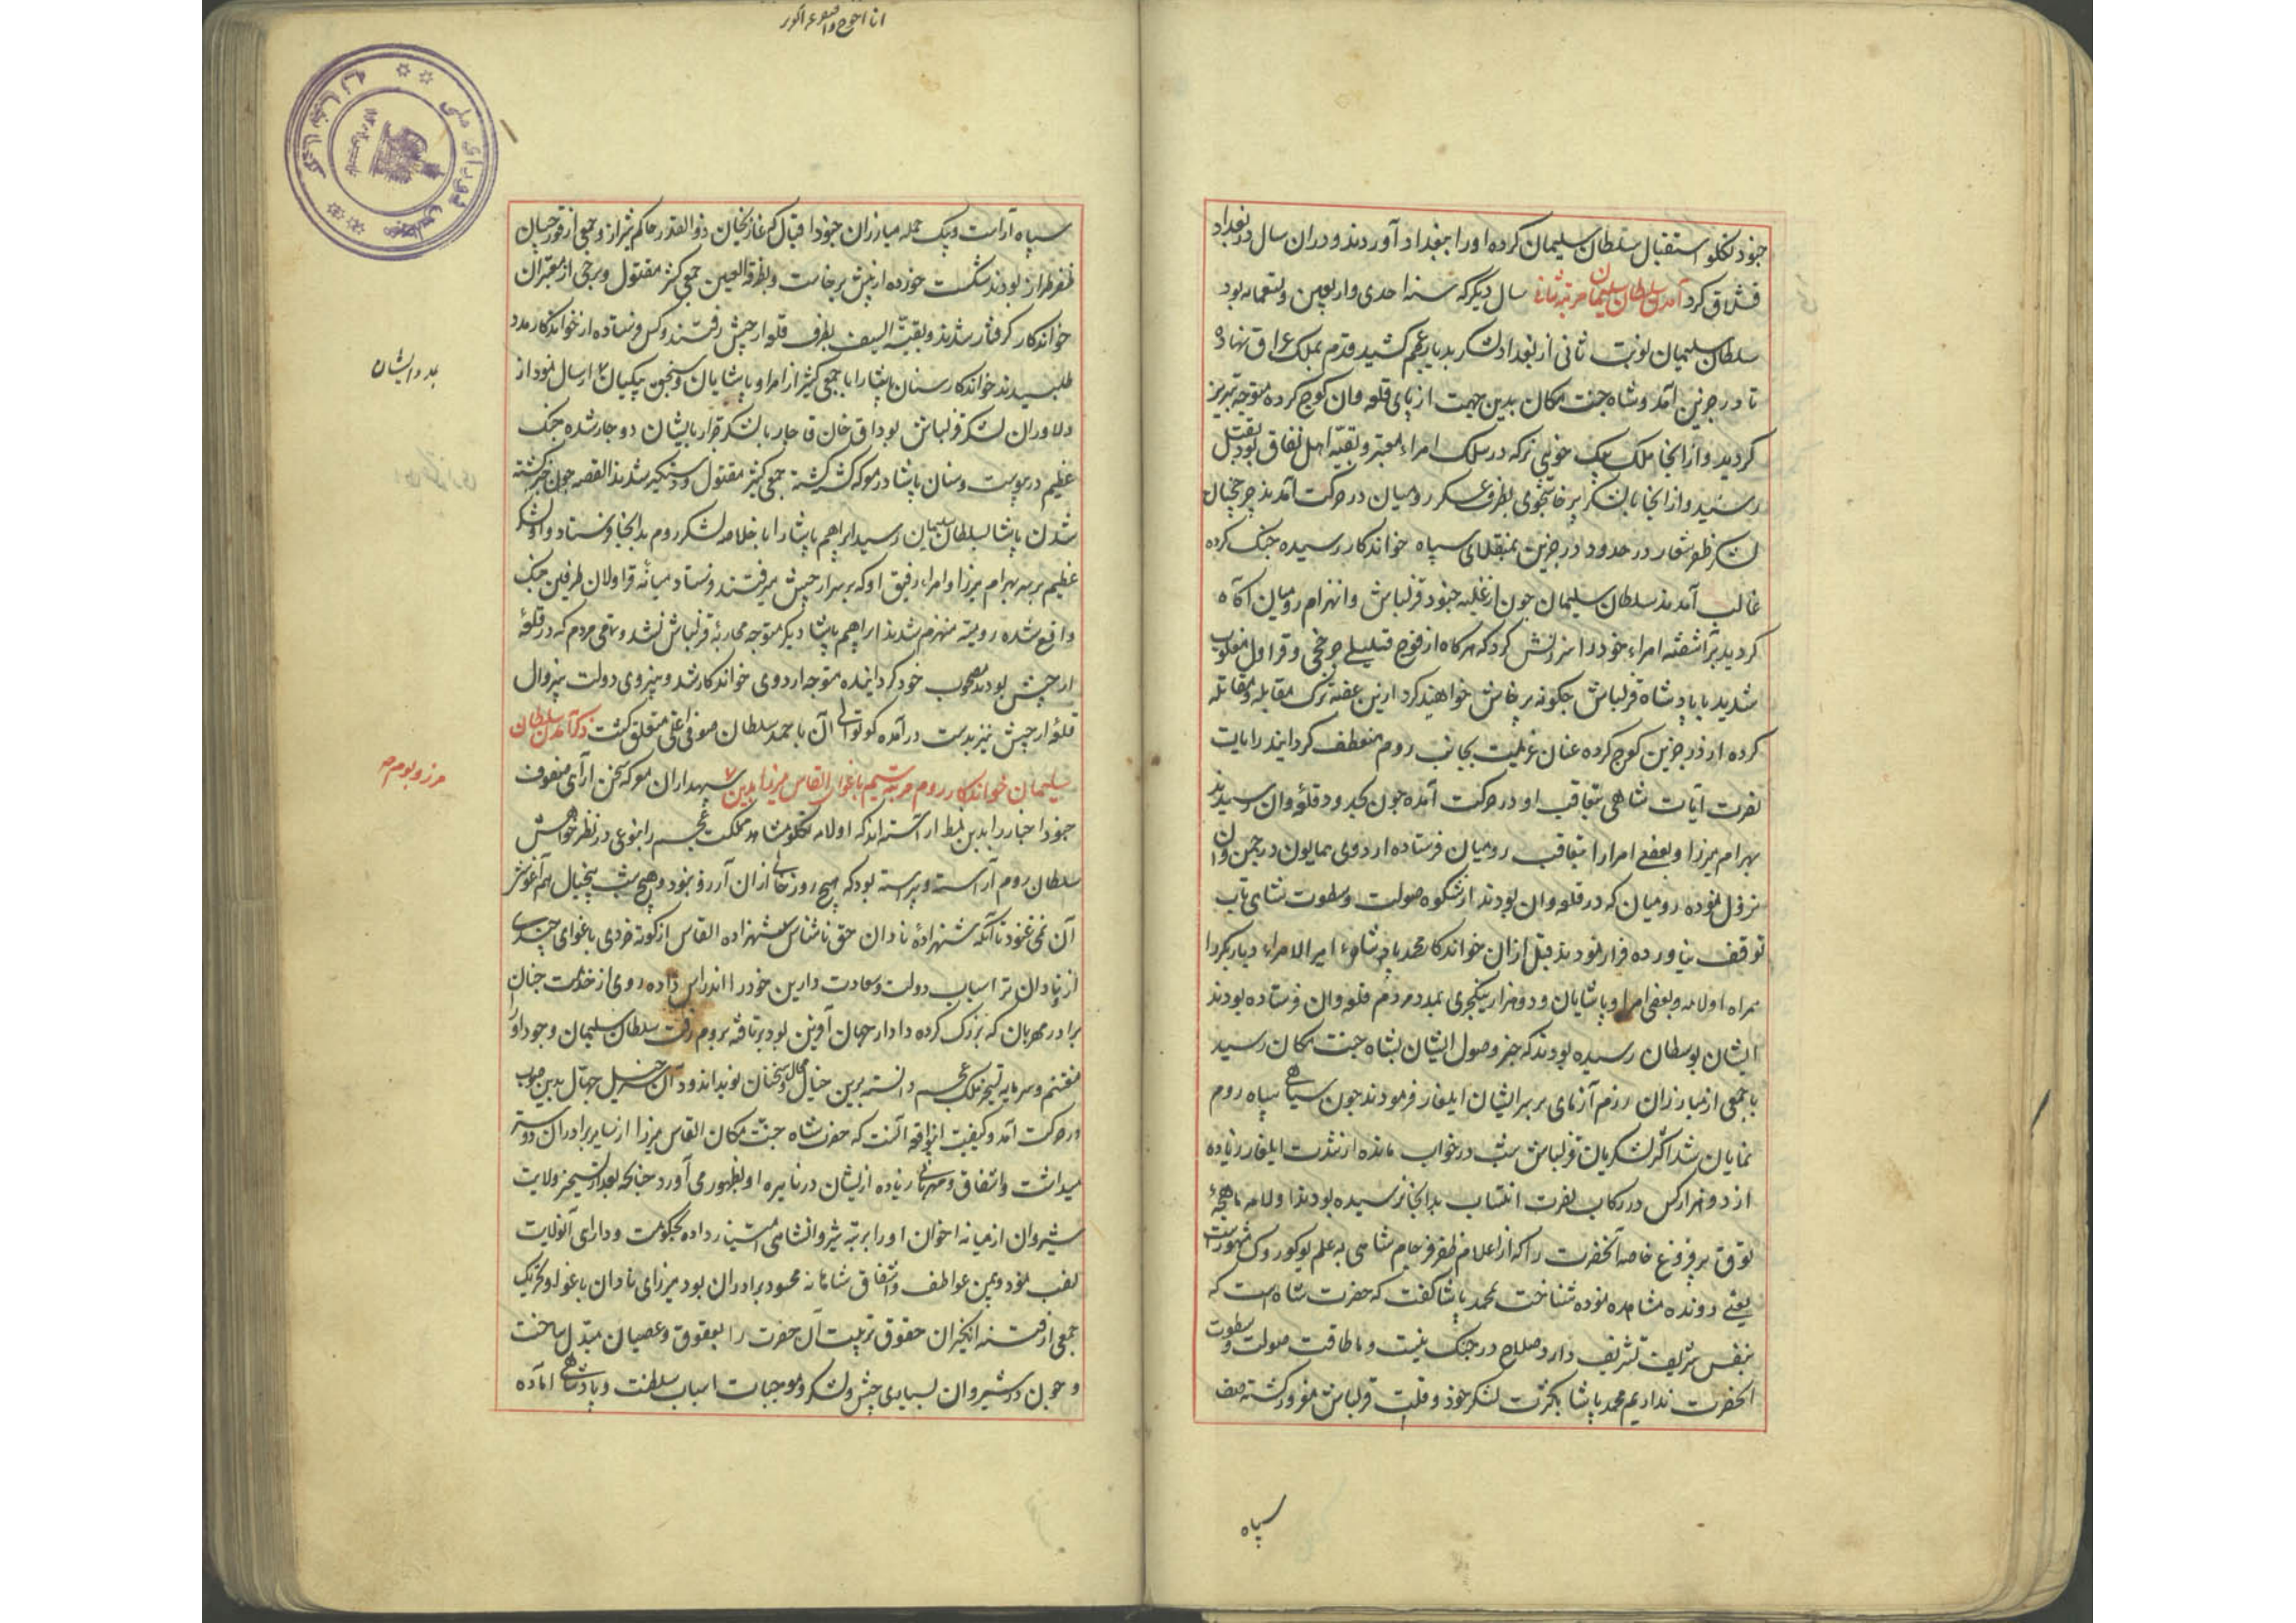 جنود تکلو استقبال سلطان سلیمان کرده او را ببغداد آوردند و در ان سال در بغداد
قشلاق کرد آمدن سلطان سلیمان مرتبه ثانی سال دیگر که سنه احدی و اربعین و تسعمائه بود
سلطان سلیمان نوبت ثانی از بغداد لشکر بدیار عجم کشید قدم بملک عراق نهاد و
تا درجزین آمد و شاه جنت مکان بدین جهت از پای قلعه وان کوچ کرده متوجه تبریز
کردید و از انجا ملک بیک خویی نرکه در سلک امراء معتبر و بقیه اهل نفاق بود بقتل
رسید و از انجا با لشکر پرخاشجوی بطرف عسکر رومیان در حرکت آمدند چرخچیان
لشکر ظفر شعار در حدود درجزین بمنقلای سپاه خواندکار رسیده جنک کرده
غالب آمدند سلطان سلیمان چون از غلبه جنود قزلباش و انهزام رومیان آکاه
کردید برآشفته امراء خود را سرزنش کرد که هرکاه از فوج قلیلی چرخچی و قراول مغلوب
شدید با پادشاه قزلباش چکونه پرخاش خواهید کرد ازین غصه ترک مقابله و مقاتله
کرده از درجزین کوچ کرده عنان عزیمت بجانب روم منعطف کردانید رایات
نصرت آیات شاهی بتعاقب او در حرکت آمده چون بحدود قلعه وان رسیدند
بهرام میرزا و بعضی امرا را بتعاقب رومیان فرستاده اردوی همایون در چمن وان
نزول نموده رومیان که در قلعه وان بودند از شکوه صولت و سطوت شاهی تاب
توقف نیاورده فرار نمودند قبل از ان خواندکار محمد پاشا امیر الامراء دیاربکر را
همراه اولامه و بعضی امرا و پاشایان و دو هزار ینکچری بمدد مردم قلعه وان فرستاده بودند
ایشان بوسطان رسیده بودند که خبر وصول ایشان بشاه جنت مکان رسید
با جمعی از مبارزان رزم آزمای بر سر ایشان ایلغار فرمودند چون سیاهی سپاه روم
نمایان شد اکثر لشکریان قزلباش شب در خواب مانده از شدت ایلغار زیاده
از دو هزار کس در رکاب نصرت انتساب بدانجا نرسیده بودند اولامه ماهچهٔ
توق پرفروغ خاصه آنحضرت را که از اعلام ظفر فرجام شاهی به علم یوکوروک مشهورست
یعنی دونده مشاهده نموده شناخت بمحمد پاشا کفت که حضرت شاه است که
بنفس شریف تشریف دارد صلاح در جنک نیست و ما طاقت صولت و سطوت
آنحضرت نداریم محمد پاشا بکثرت لشکر خود و قلت قزلباش مغرور کشته صف
سپاه
انا احوج
سپاه آراست و بیک حمله مبارزان جنود اقبال که غازیخان ذوالقدر حاکم شیراز و جمعی از قورچیان
ظفر طراز بودند شکست خورده از پیش برخاست و بطرفة العین جمعی کثیر مقتول و برخی از معتبران
خواندکار کرفتار شدند و بقیة السیف بطرف قلعه ارجیش رفتند و کس فرستاده از خواندکار مدد
طلبیدند خواندکار سنان پاشا را با جمعی کثیر از امرا و پاشایان و سنجق بیکیان ارسال نمود از
بمدد ایشان
دلاوران لشکر قزلباش بوداق خان قاجار با لشکر جرار بایشان دوچار شده جنک
عظیم در پیوست و سنان پاشا در معرکه کشته کشته جمعی کثیر مقتول و دستکیر شدند القصه چون خبر کشته
شدن پاشا بسلطان سلیمان رسید ابراهیم پاشا را با خلاصه لشکر روم بدانجا فرستاد و او لشکر
عظیم بر سر بهرام میرزا و امراء رفیق او که بر سر ارجیش میرفتند فرستاد میانهٔ قراولان طرفین جنک
واقع شده رومیه منهزم شدند ابراهیم پاشا دیکر متوجه محاربهٔ قزلباش نشد و تتمه مردم که در قلعهٔ
ارجیش بودند بمصحوب خود کردانیده متوجه اردوی خواندکار شد و بنیروی دولت بیزوال
قلعهٔ ارجیش نیز بدست درآمده کوتوالی آن با احمد سلطان صوفی اغلی متعلق کشت ذکر آمدن سلطان
سلیمان خواندکار روم مرتبه سیم باغوای القاس میرزا بدین سپهداران معرکه سخن آرای صفوف
مرز و بوم
جنود اخبار را بدین نمط آراسته اند که اولامه تکلو مشاهد مملکت عجم را بنوعی در نظر خواهش
سلطان روم آراسته و پیراسته بود که هیچ روز خالی از ان آرزو نبود و هیچ شب بیخیال هم آغوشی
آن نمی غنود تا آنکه شهزادهٔ نادان حق ناشناس شهزاده القاس از کوته خردی باغوای چندی
از نادان تر اسباب دولت و سعادت دارین خود را اندراس داده روی از خدمت چنان
برادر مهربان که بزرک کرده دادار جهان آفرین بود برتافته بروم رفت سلطان سلیمان وجود او را
مغتنم و سرمایه تسخیر ملک عجم دانسته برین خیال محال و سخنان بوند اندود آن خیل جهال بدین صوب
در حرکت آمد و کیفیت این واقعه آنست که حضرت شاه جنت مکان القاس میرزا از سایر برادران دوستر
میداشت و اشفاق و مهربانی زیاده از ایشان در باره او بظهور می آورد چنانچه بعد از تسخیر ولایت
شیروان از میانه اخوان او را برتبه شیروانشاهی امتیاز داده بحکومت و دارای آنولایت
نصب نمود و بیمن عواطف و اشفاق شاهانه محسود برادران بود میرزای نادان باغوا و تحریک
جمعی از فتنه انکیزان حقوق تربیت آن حضرت را بعقوق و عصیان مبدل ساخت
و چون در شیروان بسیاری جیش و لشکر و موجبات اسباب سلطنت و پادشاهی آماده